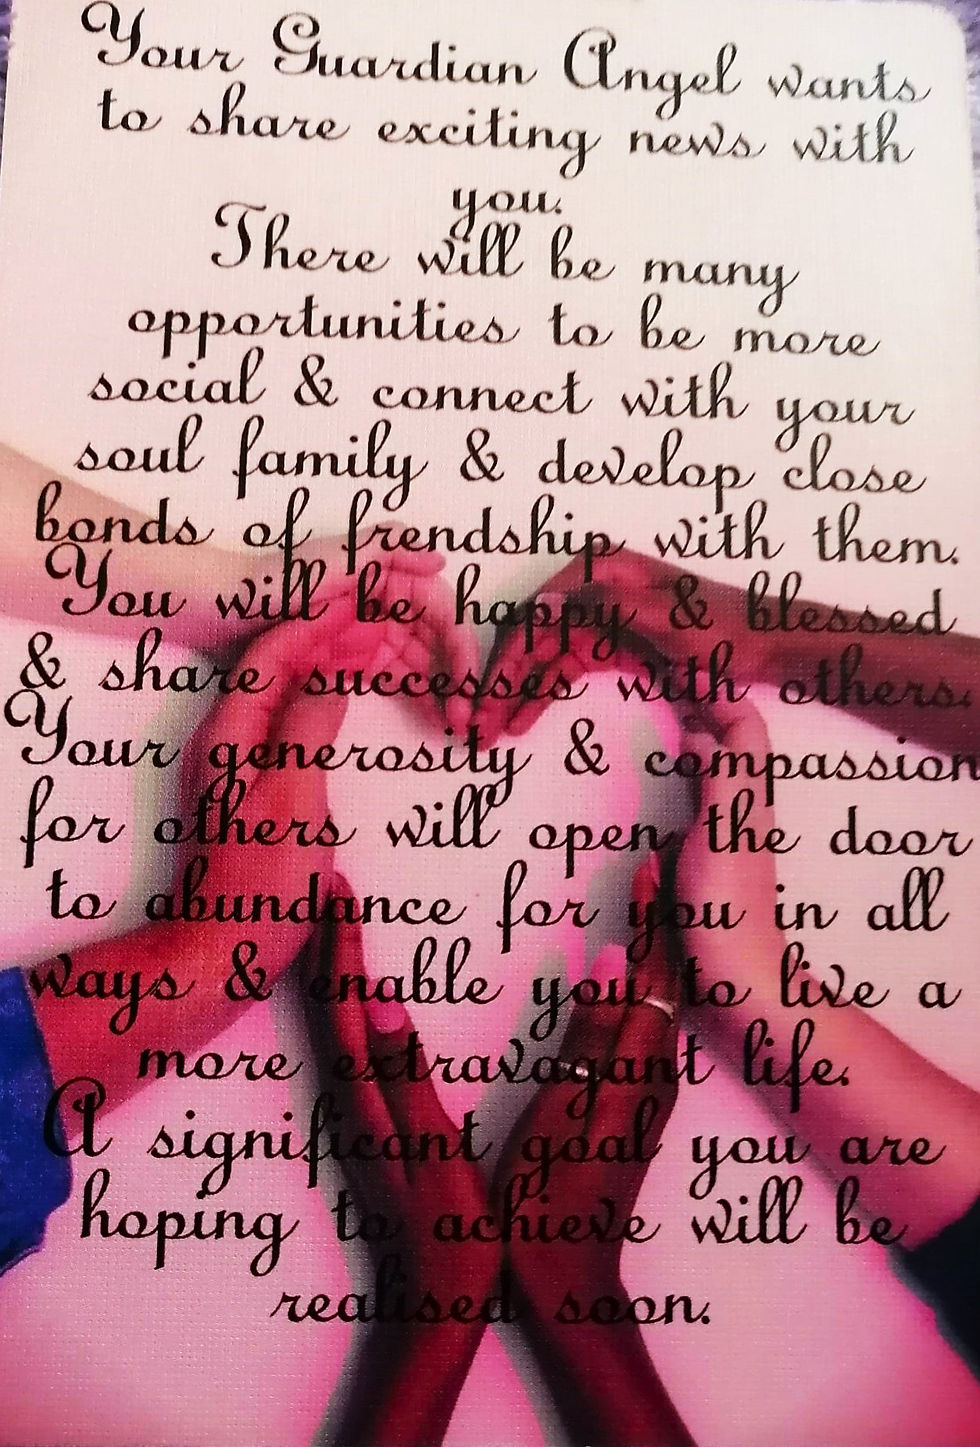 Your Guardian Angel wants
to share exciting news with
you.
There will be many
opportunities to be more
social & connect with your
soul family & develop close
bonds of frendship with them.
You will be happy & blessed
& share successes with others.
Your generosity & compassion
for others will open the door
to abundance for you in all
ways & enable you to live a
more extravagant life.
A significant goal you are
hoping to achieve will be
realised soon.